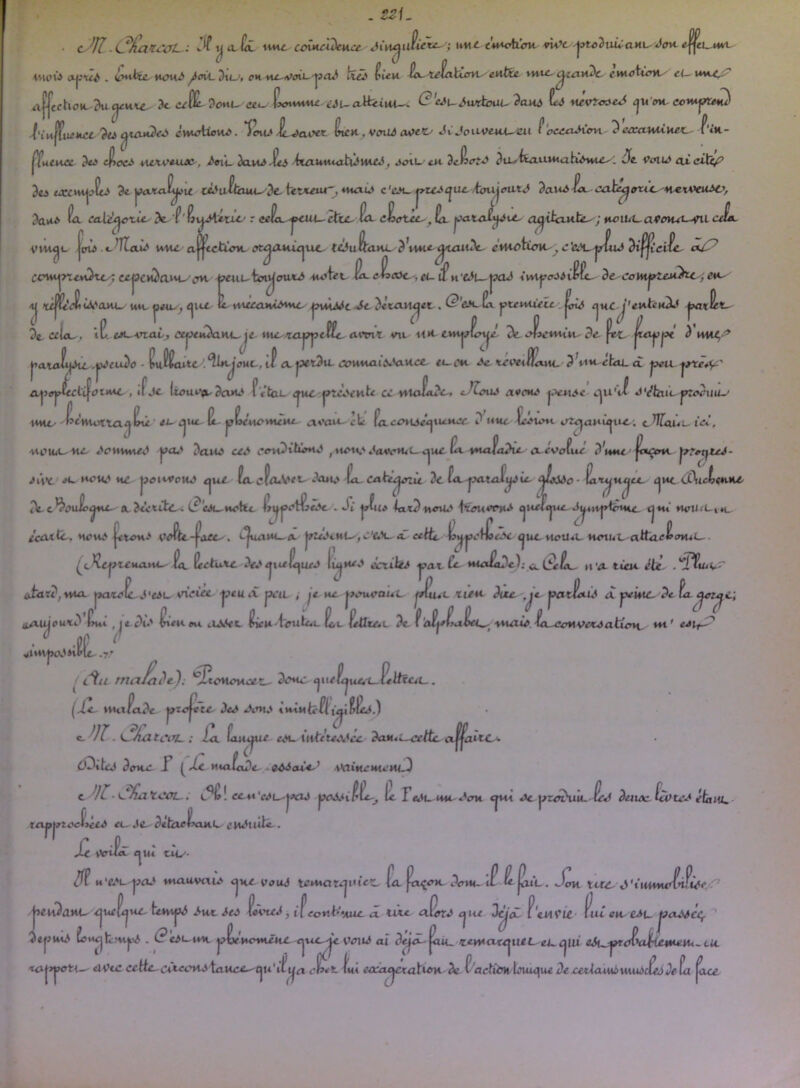 - 221 -
M. Charcot : Il y a là une coïncidence singulière ; une émotion vive produisant son effet un
mois après. Entre nous soit dit, on ne voit pas très bien la relation entre une grande émotion et une
affection du genre de celle dont cet homme est atteint. C'est surtout dans les névroses qu'on comprend
l'influence des grandes émotions. Vous le savez bien, vous avez si souvent eu l'occasion d'examiner l'in-
fluence des chocs nerveux, soit dans les traumatismes, soit en dehors du traumatisme. Je vous ai cité
des exemples de paralysie résultant de terreur, mais c'est presque toujours dans la catégorie nerveuse,
dans la catégorie de l'hystérie : cela peut être la chorée, la paralysie agitante ; nous avons vu cela
vingt fois. Mais une affection organique résultant d'une grande émotion, c'est plus difficile à
comprendre ; cependant on peut toujours noter la chose, et il n'est pas impossible de comprendre, en
y réfléchissant un peu, que le mécanisme puisse se déranger. C'est la première fois que j'entends parler
de cela. Il est vrai, cependant je me rappelle avoir vu un employé de chemin de fer frappé d'une
paralysie pseudo-bulbaire. Un jour, il a perdu connaissance et en se réveillant d'un état à peu près
apoplectiforme, il se trouva dans l'état que présente ce malade. Nous avons pensé qu'il s'était produit
une hémorrhagie et que le phénomène avait été la conséquence d'une lésion organique. Mais ici,
nous ne sommes pas dans ces conditions, nous savons que la maladie a évolué d'une façon progres-
sive et nous ne pouvons que la classer dans la catégorie de la paralysie glosso-laryngée que Duchenne
de Boulogne a décrite. C'est notre hypothèse. Si plus tard nous trouvons quelque symptôme qui nous en
écarte, nous ferons volte-face. Quant à présent, c'est à cette hypothèse que nous nous attachons.
(Reprenant la lecture des quelques lignes écrites par le malade) : « Cela n'a rien été. Plus
tard, ma parole s'est viciée peu à peu, je ne pouvais plus rien dire, je parlais à peine de la gorge ;
aujourd'hui, je dis bien ou assez bien toutes les lettres de l'alphabet, mais la conversation m'est
impossible. »
(Au malade) : Prononcez donc quelques lettres.
(Le malade projette des sons inintelligibles.)
M. Charcot : La langue est intéressée dans cette affaire.
Dites donc P (Le malade essaie vainement)
M. Charcot : Oh ! ce n'est pas possible, le P est un son qui se produit les deux lèvres étant
rapprochées et se détachant ensuite.
Le voilà qui rit.
Il n'est pas mauvais que vous remarquiez la façon dont il le fait. Son rire s'immobilise
pendant quelque temps sur ses lèvres, il continue à rire alors que déjà l'envie lui en est passée
depuis longtemps. C'est un phénomène que je vous ai déjà fait remarquer et qui est probablement en
rapport avec cette circonstance qu'il y a chez lui exagération de l'action tonique de certains muscles de la face